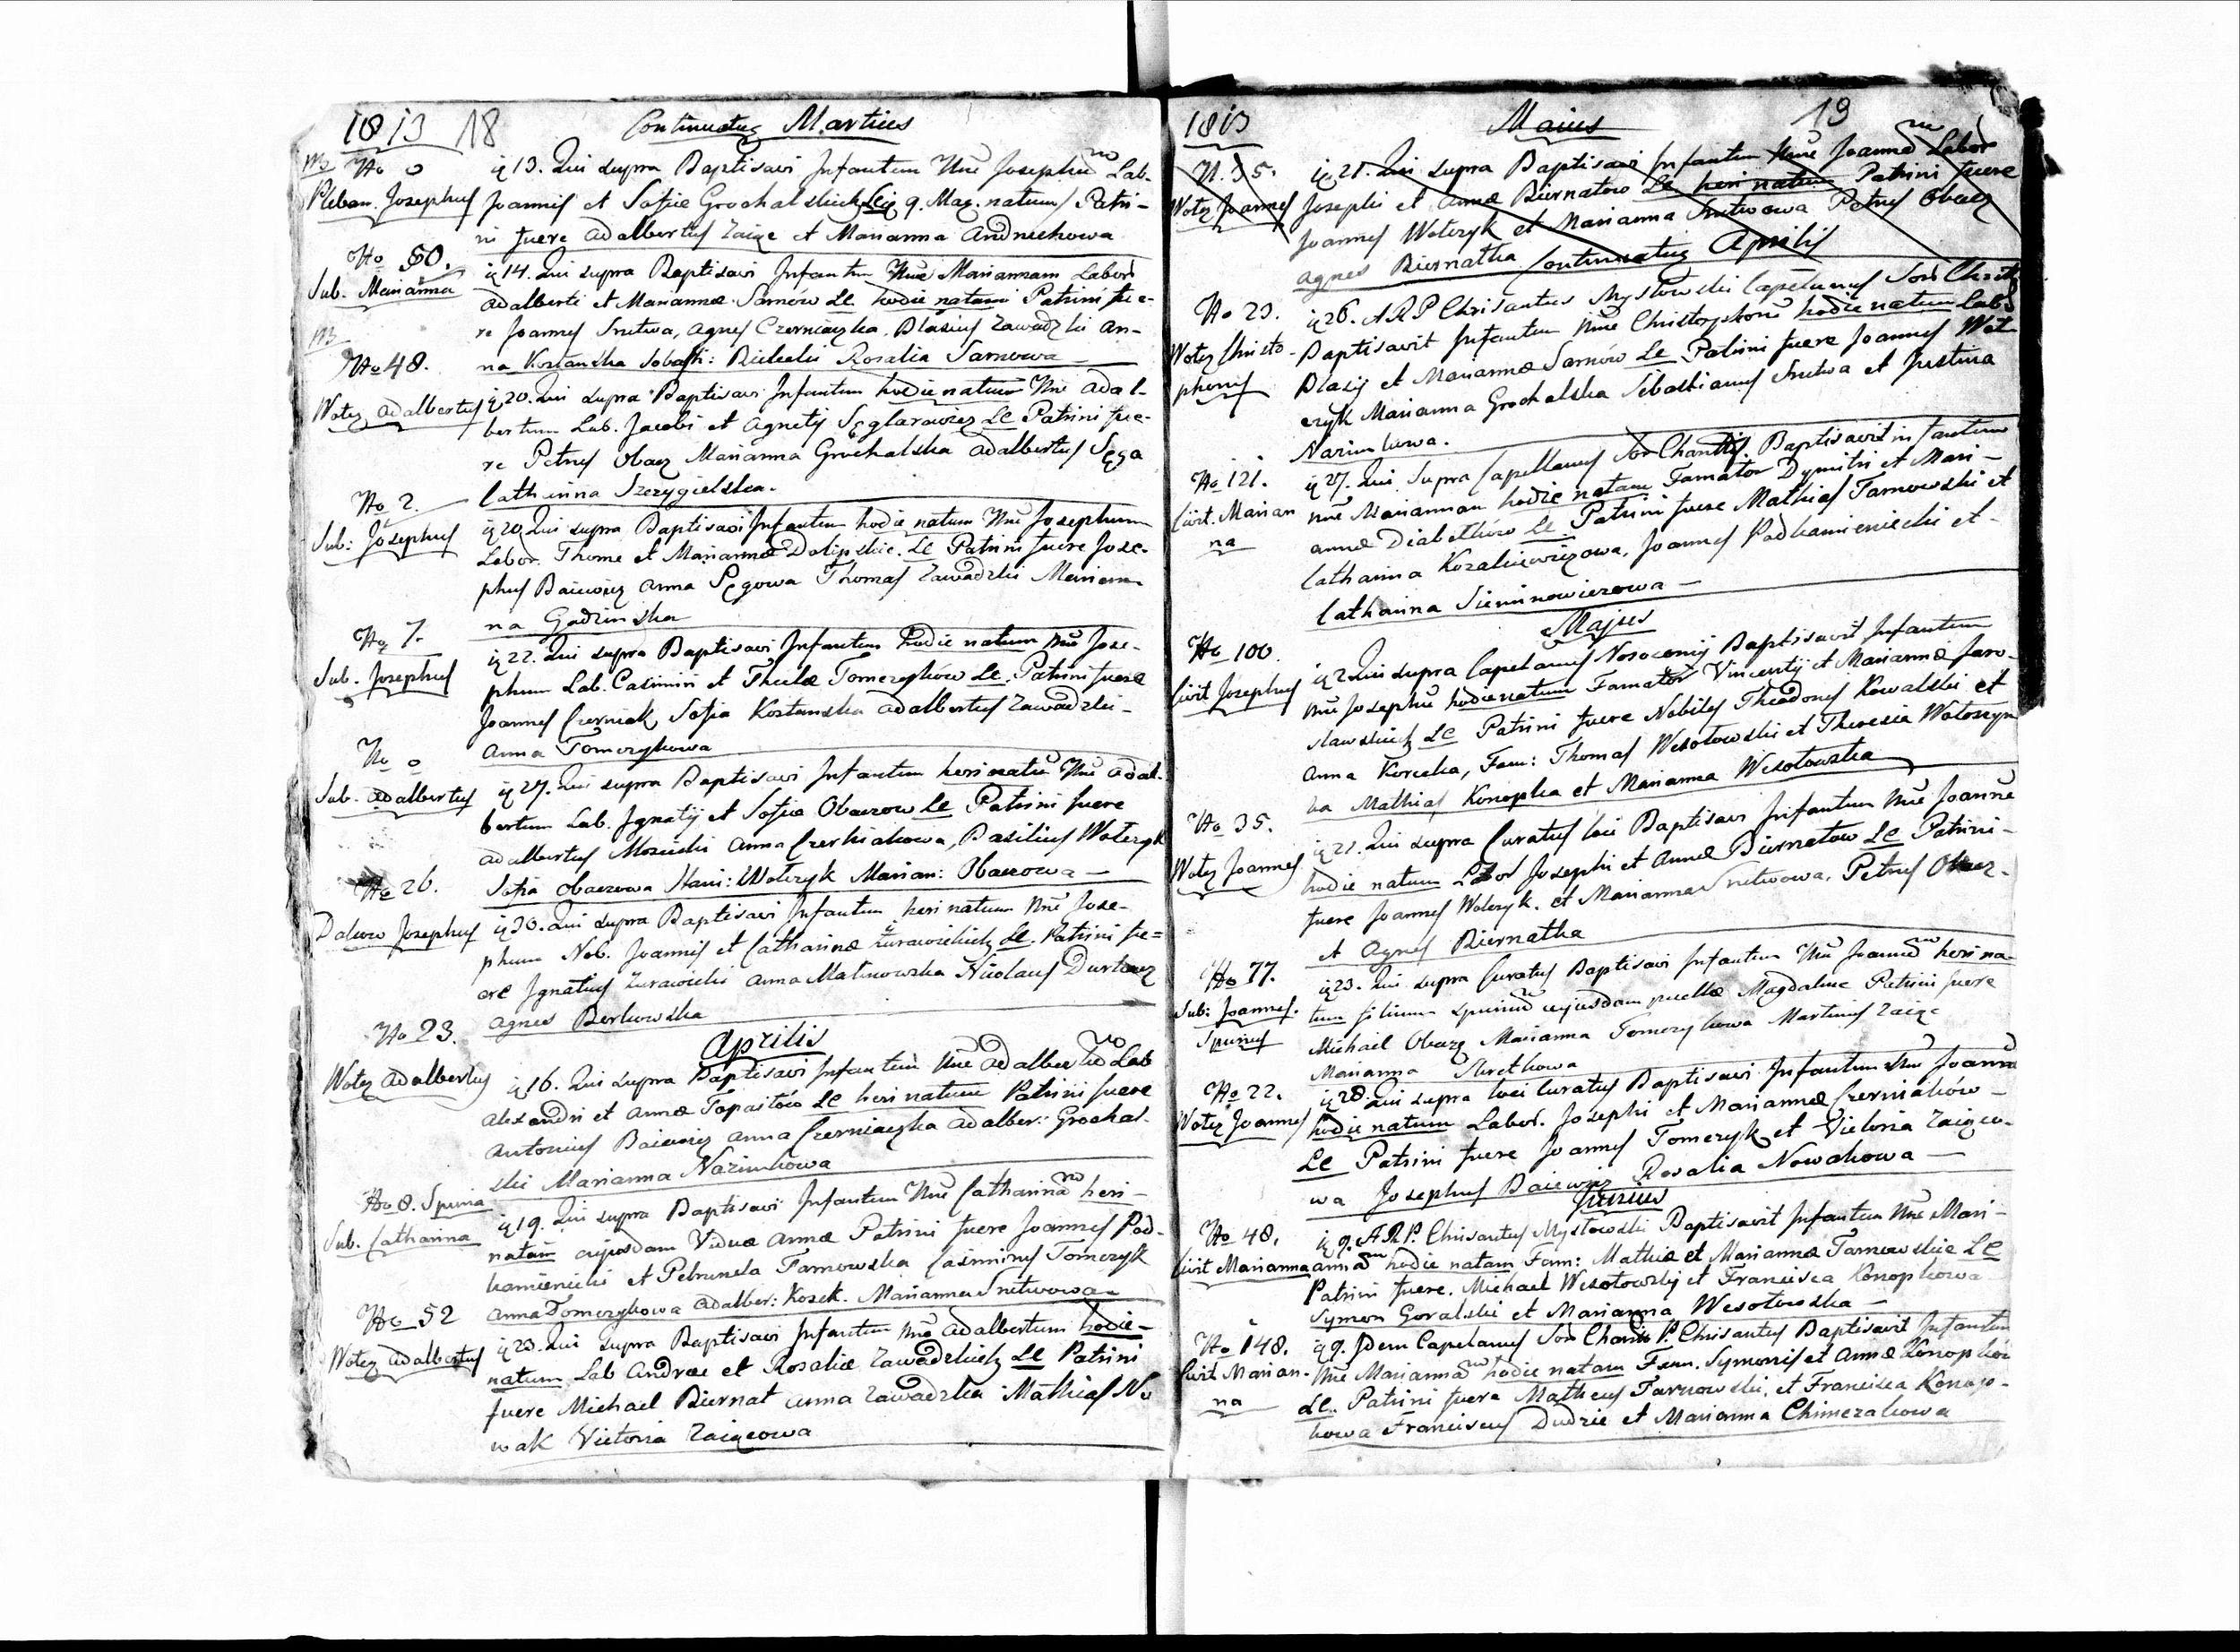 1813 18 Continuatus Martius
No 0 ię 13. Qui supra Baptisavi Infantem Nne Josephum Lab.
Pleban. Josephus Joannis et Sofiæ Grochalskich LC ię 9. Mar. natum Patri-
ni fuere Adalbertus Zaięc et Marianna Andruchowa
No 50. ię 14. Qui supra Baptisavi Infantem Nne Mariannam Labor
Sub. Marianna Adalberti et Mariannæ Sarnów LC hodie natam Patrini fue-
re Joannes Snitwa, Agnes Czerniaczka, Blasius Zawadzki An-
No 48. na Kostanska Rosalia Sarnowa
Wotez Adalbertus ię 20. Qui supra Baptisavi Infantem hodie natum Nne Adal-
bertum Lab. Jacobi et Agnetis Sęglarowicz LC Patrini fue-
re Petrus Obacz Marianna Grochalska Adalbertus Sęga
No 2. Catharina Szczygielska.
Sub: Josephus ię 20. Qui supra Baptisavi Infantem hodie natum Nne Josephum
Labor. Thomæ et Mariannæ LC Patrini fuere Jose-
phus Baiewicz Anna Sęgowa Thomas Zawadzki Marian-
na Gadzinska
No 7. ię 22. Qui supra Baptisavi Infantem hodie natum Nne Jose-
Sub. Josephus phum Lab. Casimiri et Theclæ Tomczyków LC. Patrini fuere
Joannes Czerniak Sofia Kostanska Adalbertus Zawadzki-
Anna Tomczykowa
No 0 ię 27. Qui supra Baptisavi Infantem heri natū Nne Adal-
Sub. Adalbertus bertum Lab. Ignatij et Sofiæ Obaczow LC Patrini fuere
Adalbertus Anna Czerniakowa, Basilius Wołczyk
No 26. Sofia Obaczowa Wołczyk Marian: Obaczowa
Josephus ię 30. Qui supra Baptisavi Infantem heri natum Nne Jose-
phum Nob. Joannis et Catharinæ Żurawickich LC. Patrini fu=
ere Ignatius Żurawicki Anna Malinowska Nicolaus
Agnes Berkowska
No 23. Aprilis
Wotez Adalbertus ię 16. Qui supra Baptisavi Infantem Nne Adalbertum Lab
Alexandri et Annæ LC heri natum Patrini fuere
Antonius Baiewicz Anna Czerniaczka Adalber: Grochal-
ski Marianna Nazimkowa
No 8. Spuria ię 19. Qui supra Baptisavi Infantem Nne Catharinam heri-
Sub. Catharina natam cujusdam Viduæ Annæ Patrini fuere Joannes Pod-
kamieniecki et Petrunela Tarnowska Casimirus Tomczyk
Anna Tomczykowa Adalber: Kosek. Marianna Snitwowa
No 52 ię 23. Qui supra Baptisavi Infantem Nne Adalbertum hodie-
Wotez Adalbertus natum Lab Andreæ et Rosaliæ Zawadzkich LC Patrini
fuere Michael Biernat Anna Zawadzka Mathias No
wak Victoria Zaięcowa
1813 Maius 19
N. 35. ię 21. Qui supra Baptisavi Infantem Nne Joannem Labor
Wotez Joannes Josephi et Annæ Biernatow LC heri natum Patrini fuere
Joannes Wołczyk et Marianna Snitwowa Petrus Obacz
Agnes Biernatka Continuatus Aprilis
No 23. ię 26. A R P Chrisantus Mysłowski Capelanus
Wotez Christo- Baptisavit Infantem Nne Christophorū hodie natum Lab
phorus Blasij et Mariannæ Sarnów LC Patrini fuere Joannes Woł
czyk Marianna Grochalska Sebastianus Snitwa et Justina
Nazimkowa.
No 121. ię 27. Qui supra Capellanus Baptisavit infantem
Civit. Marian Nne Mariannam hodie natam Famator Dymitri et Mari-
na annæ LC. Patrini fuere Mathias Tarnowski et
Catharina Kozakiewiczowa, Joannes Podkamieniecki et
Catharina
Majus
No 100. ię 2 Qui supra Capelanus Nosocomij Baptisavit Infantem
Civit Josephus Nne Josephū hodie natum Famator Vincentij et Mariannæ Jaro-
sławskich LC Patrini fuere Nobiles Theodorus Kowalski et
Anna Korecka, Fam: Thomas Wesołowski et Theresia Wołoszyn
ka Mathias Konopka et Marianna Wesołowska
No 35. ię 21. Qui supra Curatus loci Baptisavi Infantem Nne Joannē
Wotez Joannes hodie natum Labor Josephi et Annæ Biernatow LC Patrini-
fuere Joannes Wołczyk. et Marianna Snitwowa, Petrus Obacz-
et Agnes Biernatka
No 77. ię 23. Qui supra Curatus Baptisavi Infantem Nne Joannem heri na-
Sub: Joannes. tum filium Spurium cujusdam puellæ Magdalinæ Patrini fuere
Spurius Michael Obacz Marianna Tomczykowa Martinus Zaięc
Marianna
No 22. ię 28. Qui supra loci Curatus Baptisavi Infantem Nne Joannē
Wotez Joannes hodie natum Labor. Josephi et Mariannæ Czerniaków-
LC Patrini fuere Joannes Tomczyk et Victoria Zaięco-
wa Josephus Baiewicz Rosalia Nowakowa
Junius
No 48. ię 9. A R P. Chrisantus Mysłowski Baptisavit Infantem Nne Mari-
Civit Marianna annam hodie natam Fam: Mathiæ et Mariannæ Tarnowskie LC
Patrini fuere. Michael Wesołowski et Francisca Konopkowa
Symon Goralski et Marianna Wesołowska
No 148. ię 9. Idem Capelanus P. Chrisantus Baptisavit Infantem
Civit Marian- Nne Mariannam hodie natam Fam. Symonis et Annæ Konopków
na LC. Patrini fuere Matheus Tarnowski, et Francisca Konop-
kowa Franciscus Dudzic et Marianna Chimczakowa